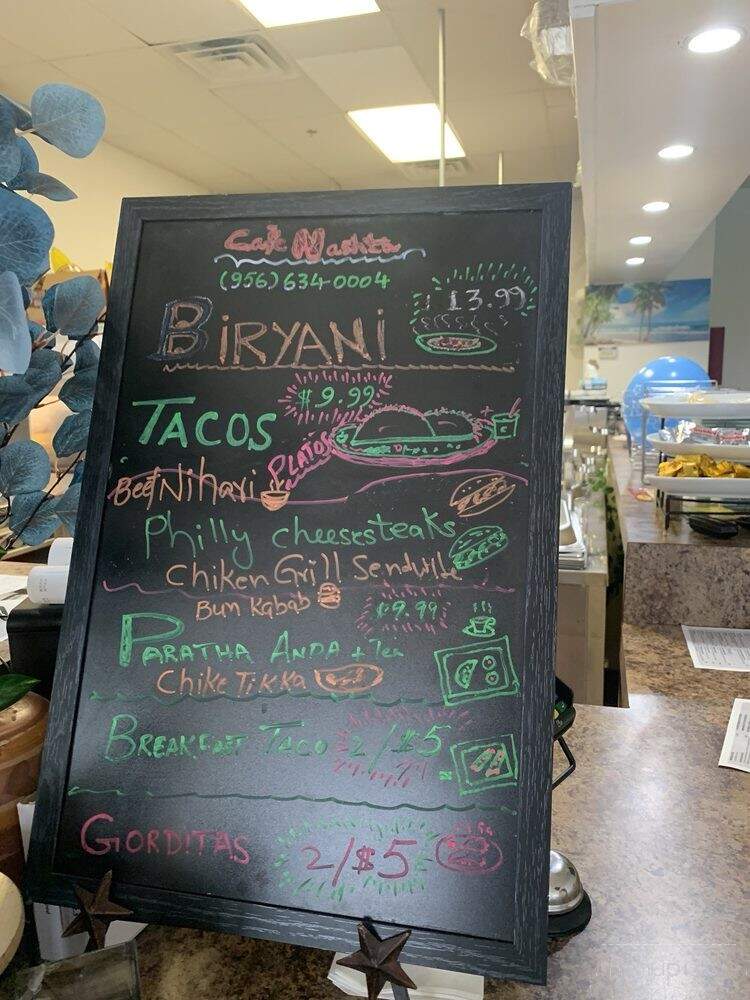 Café Nashita
(956) 634-0004
BiRYANi $13.99
TACOS $9.99
PLATOS
Beef Nihari
Philly cheesesteaks
Chiken Grill Sendwich
Bun Kabab $9.99
PARATHA ANDA + Tea
Chike Tikka
BREAKFAST TACO 2/$5
GORDITAS 2/$5